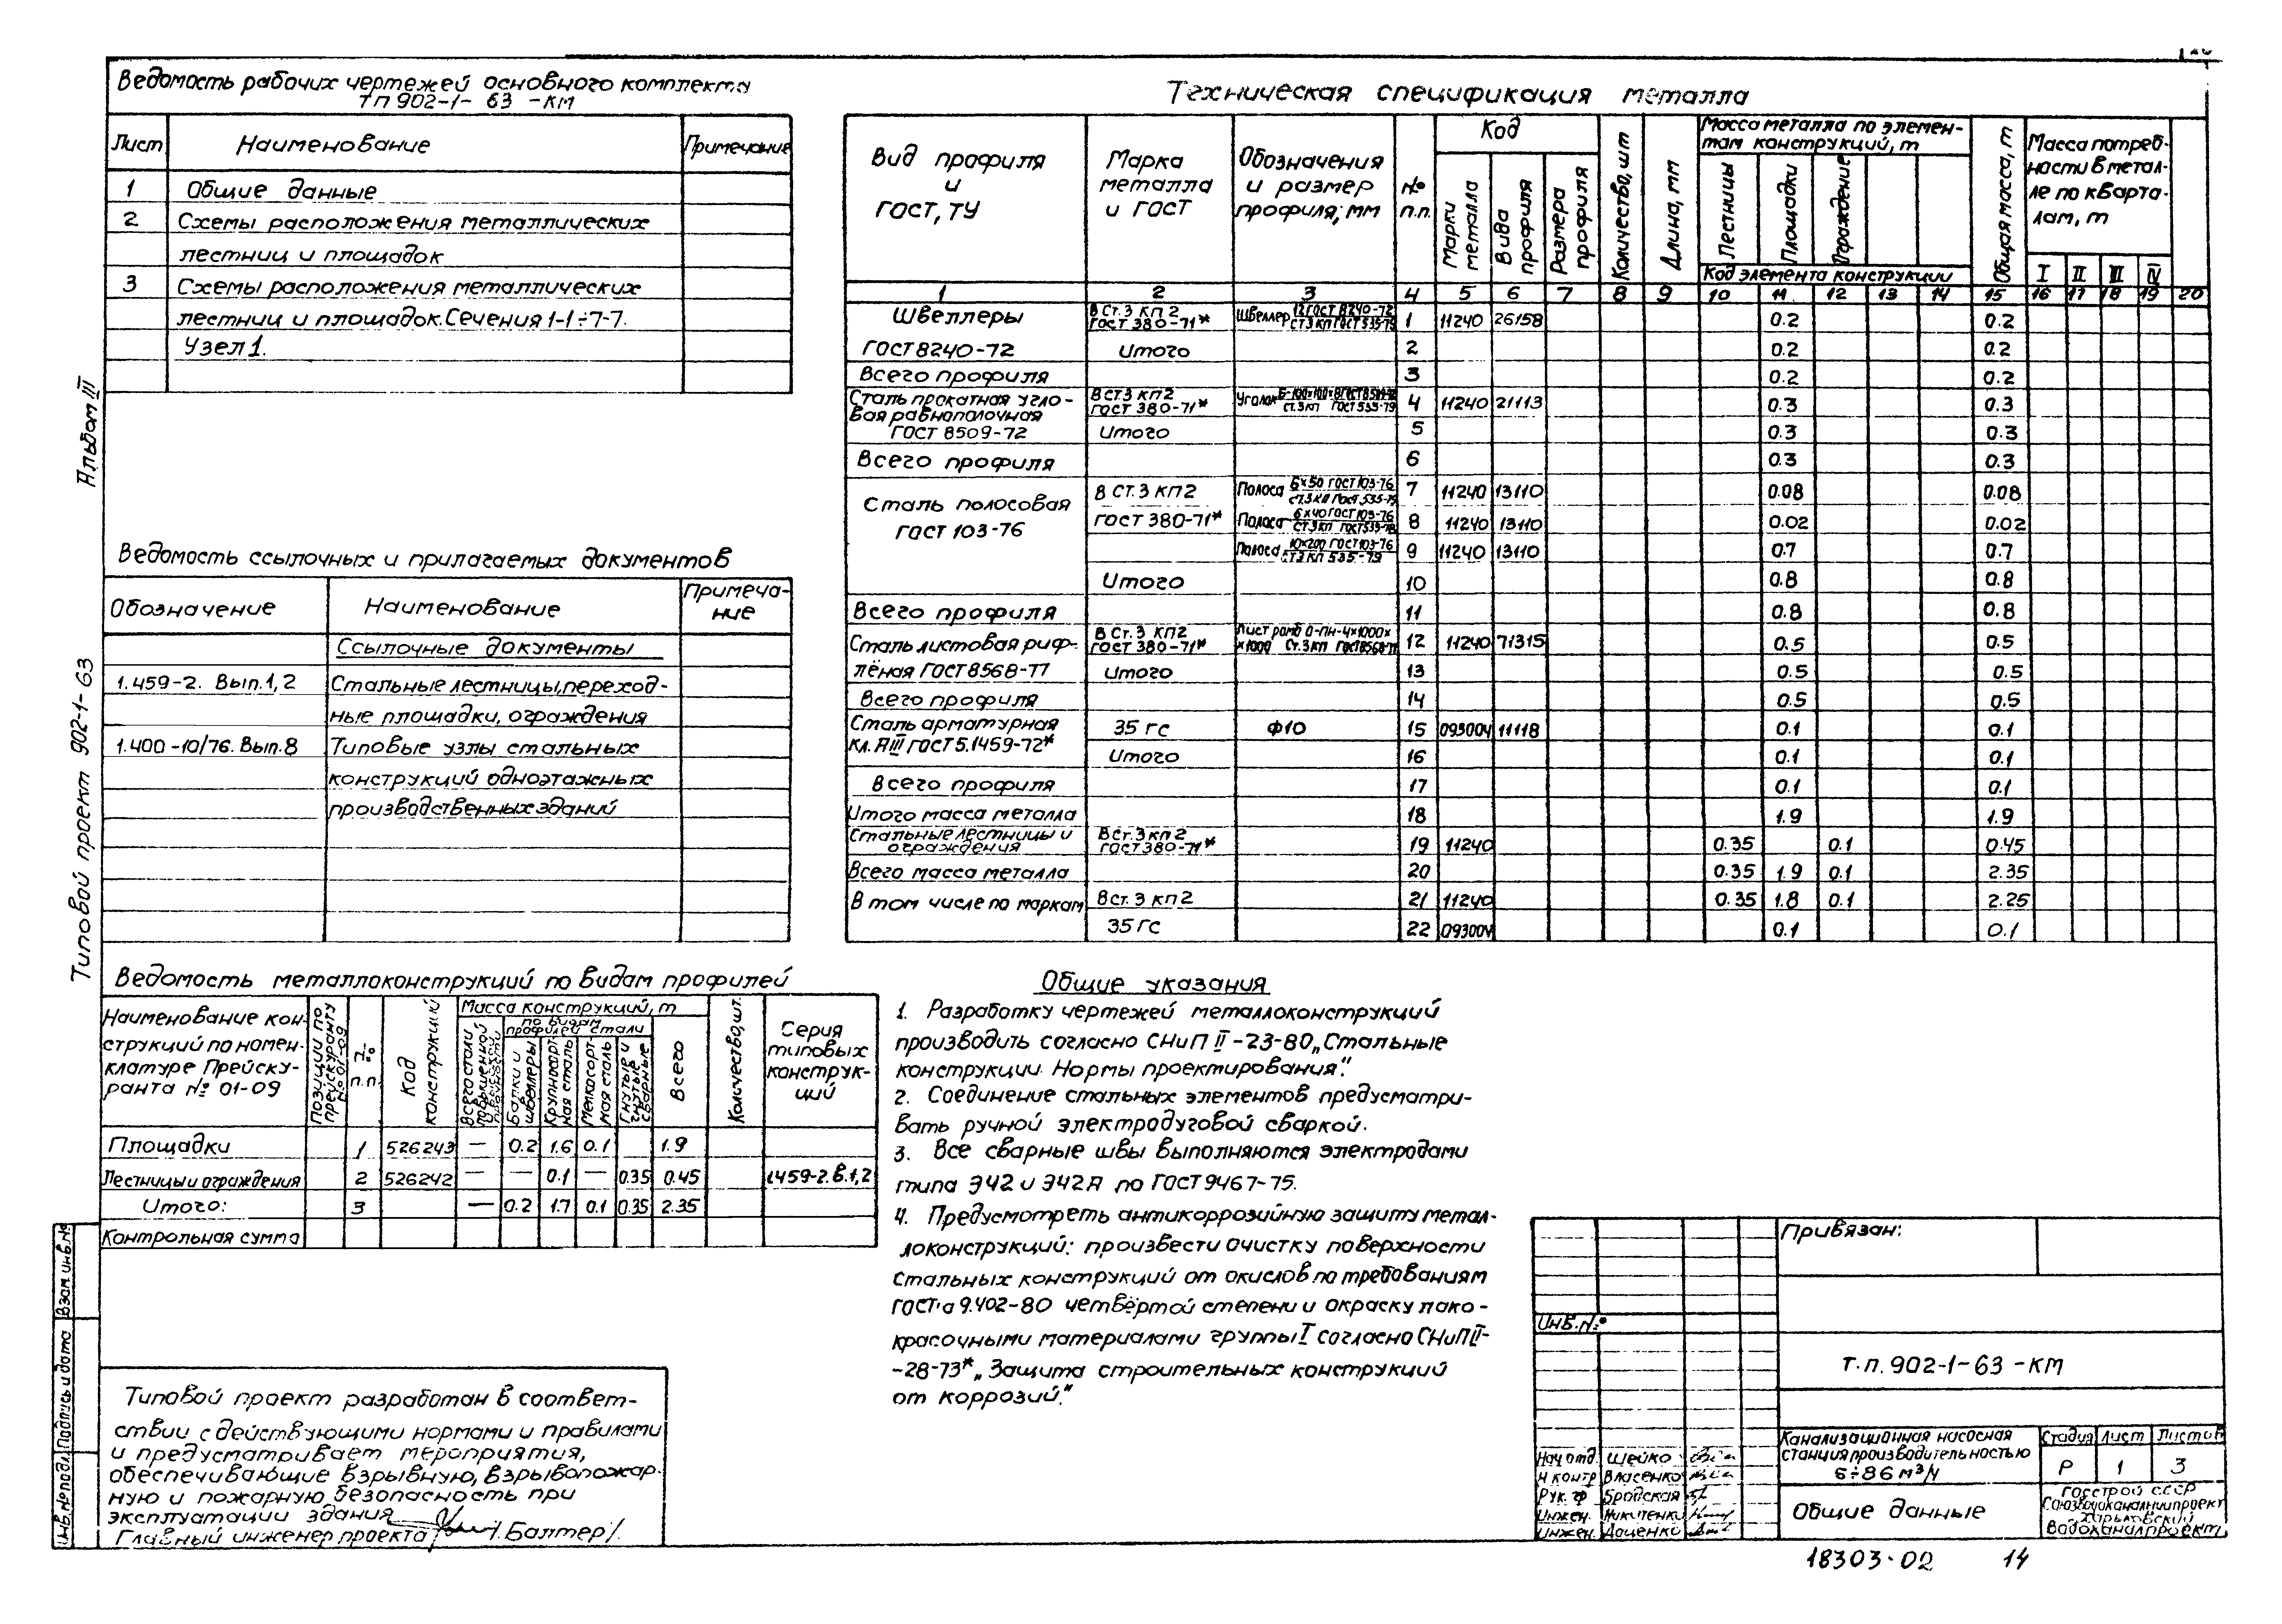 Ведомость рабочих чертежей основного комплекта
ТП 902-1- 63 -КМ
Лист Наименование Примечание
1 Общие данные
2 Схемы расположения металлических
лестниц и площадок
3 Схемы расположения металлических
лестниц и площадок. Сечения 1-1÷7-7.
Узел 1.
Альбом III
Типовой проект 902-1-63
Ведомость ссылочных и прилагаемых документов
Обозначение Наименование Примеча-
ние
Ссылочные документы
1.459-2. Вып.1,2 Стальные лестницы, переход-
ные площадки, ограждения
1.400-10/76. Вып.8 Типовые узлы стальных
конструкций одноэтажных
производственных зданий
Техническая спецификация металла
Вид профиля
и
ГОСТ, ТУ
Марка
металла
и ГОСТ
Обозначения
и размер
профиля, мм
№
п.п.
Код
Марки
металла
Вида
профиля
Размера
профиля
Количество, шт
Длина, мм
Масса металла по элемен-
там конструкций, т
Лестницы
Площадки
Ограждение
Код элемента конструкции
Общая масса, т
Масса потреб-
ности в метал-
ле по кварта-
лам, т
I II III IV
1 2 3 4 5 6 7 8 9 10 11 12 13 14 15 16 17 18 19 20
Швеллеры В Ст.3 КП 2 ГОСТ 380-71* Швеллер 12 ГОСТ 8240-72 Ст 3 КП ГОСТ 535-79 1 11240 26158 0.2 0.2
ГОСТ 8240-72 Итого 2 0.2 0.2
Всего профиля 3 0.2 0.2
Сталь прокатная угло-
вая равнополочная
ГОСТ 8509-72
В СТ3 КП2 ГОСТ 380-71* Уголок Ст.3 КП ГОСТ 535-79 4 11240 21113 0.3 0.3
Итого 5 0.3 0.3
Всего профиля 6 0.3 0.3
Сталь полосовая
ГОСТ 103-76
В СТ.3 КП2 Полоса 6×50 ГОСТ 103-76 Ст.3 КП ГОСТ 535-79 7 11240 13110 0.08 0.08
ГОСТ 380-71* Полоса 6×40 ГОСТ 103-76 Ст.3 КП ГОСТ 535-79 8 11240 13110 0.02 0.02
Полоса 10×200 ГОСТ 103-76 Ст3 КП 535-79 9 11240 13110 0.7 0.7
Итого 10 0.8 0.8
Всего профиля 11 0.8 0.8
Сталь листовая риф-
лёная ГОСТ 8568-77
В Ст. 3 КП2 ГОСТ 380-71* Лист ромб 0-ПН-4×1000× ×1000 Ст.3 КП ГОСТ 8568-77 12 11240 71315 0.5 0.5
Итого 13 0.5 0.5
Всего профиля 14 0.5 0.5
Сталь арматурная
кл. АIII ГОСТ 5.1459-72*
35 ГС Ф10 15 093004 11118 0.1 0.1
Итого 16 0.1 0.1
Всего профиля 17 0.1 0.1
Итого масса металла 18 1.9 1.9
Стальные лестницы и
ограждения
В Ст. 3 КП 2 ГОСТ 380-71* 19 11240 0.35 0.1 0.45
Всего масса металла 20 0.35 1.9 0.1 2.35
В том числе по маркам В Ст. 3 КП 2 21 11240 0.35 1.8 0.1 2.25
35 ГС 22 093004 0.1 0.1
Ведомость металлоконструкций по видам профилей
Наименование кон-
струкций по номен-
клатуре Прейску-
ранта № 01-09
Позиции по
прейскуранту
№ 01-09
№
п.п.
Код
конструкций
Масса конструкций, т
по видам
профилей стали
Балки и
швеллеры
Крупносорт-
ная сталь
Мелкосорт-
ная сталь
Всего
Количество, шт.
Серия
типовых
конструк-
ций
Площадки 1 526243 — 0.2 1.6 0.1 1.9
Лестницы и ограждения 2 526242 — — 0.1 — 0.35 0.45 1.459-2.В.1,2
Итого: 3 — 0.2 1.7 0.1 0.35 2.35
Контрольная сумма
Общие указания
1. Разработку чертежей металлоконструкций
производить согласно СНиП II-23-80 „Стальные
конструкции. Нормы проектирования".
2. Соединение стальных элементов предусматри-
вать ручной электродуговой сваркой.
3. Все сварные швы выполняются электродами
типа Э42 и Э42А по ГОСТ 9467-75.
4. Предусмотреть антикоррозийную защиту метал-
локонструкций: произвести очистку поверхности
стальных конструкций от окислов по требованиям
ГОСТ'а 9.402-80 четвёртой степени и окраску лако-
красочными материалами группы I согласно СНиП II-
-28-73* „Защита строительных конструкций
от коррозий."
Типовой проект разработан в соответ-
ствии с действующими нормами и правилами
и предусматривает мероприятия,
обеспечивающие взрывную, взрывопожар-
ную и пожарную безопасность при
эксплуатации здания
Главный инженер проекта /Балтер/.
Взам. инв. №
Подпись и дата
Инв. № подл.
Привязан:
Инв. №
Т.П. 902-1-63 -КМ
Нач отд. Шейко
Н контр Власенко
Рук. гр Бродская
Инжен. Никитенко
Инжен. Даценко
Канализационная насосная
станция производительностью
6÷86 м³/ч
Стадия Лист Листов
Р 1 3
Общие данные
Госстрой СССР
Союзводоканалниипроект
Харьковский
Водоканалпроект
18303-02 14